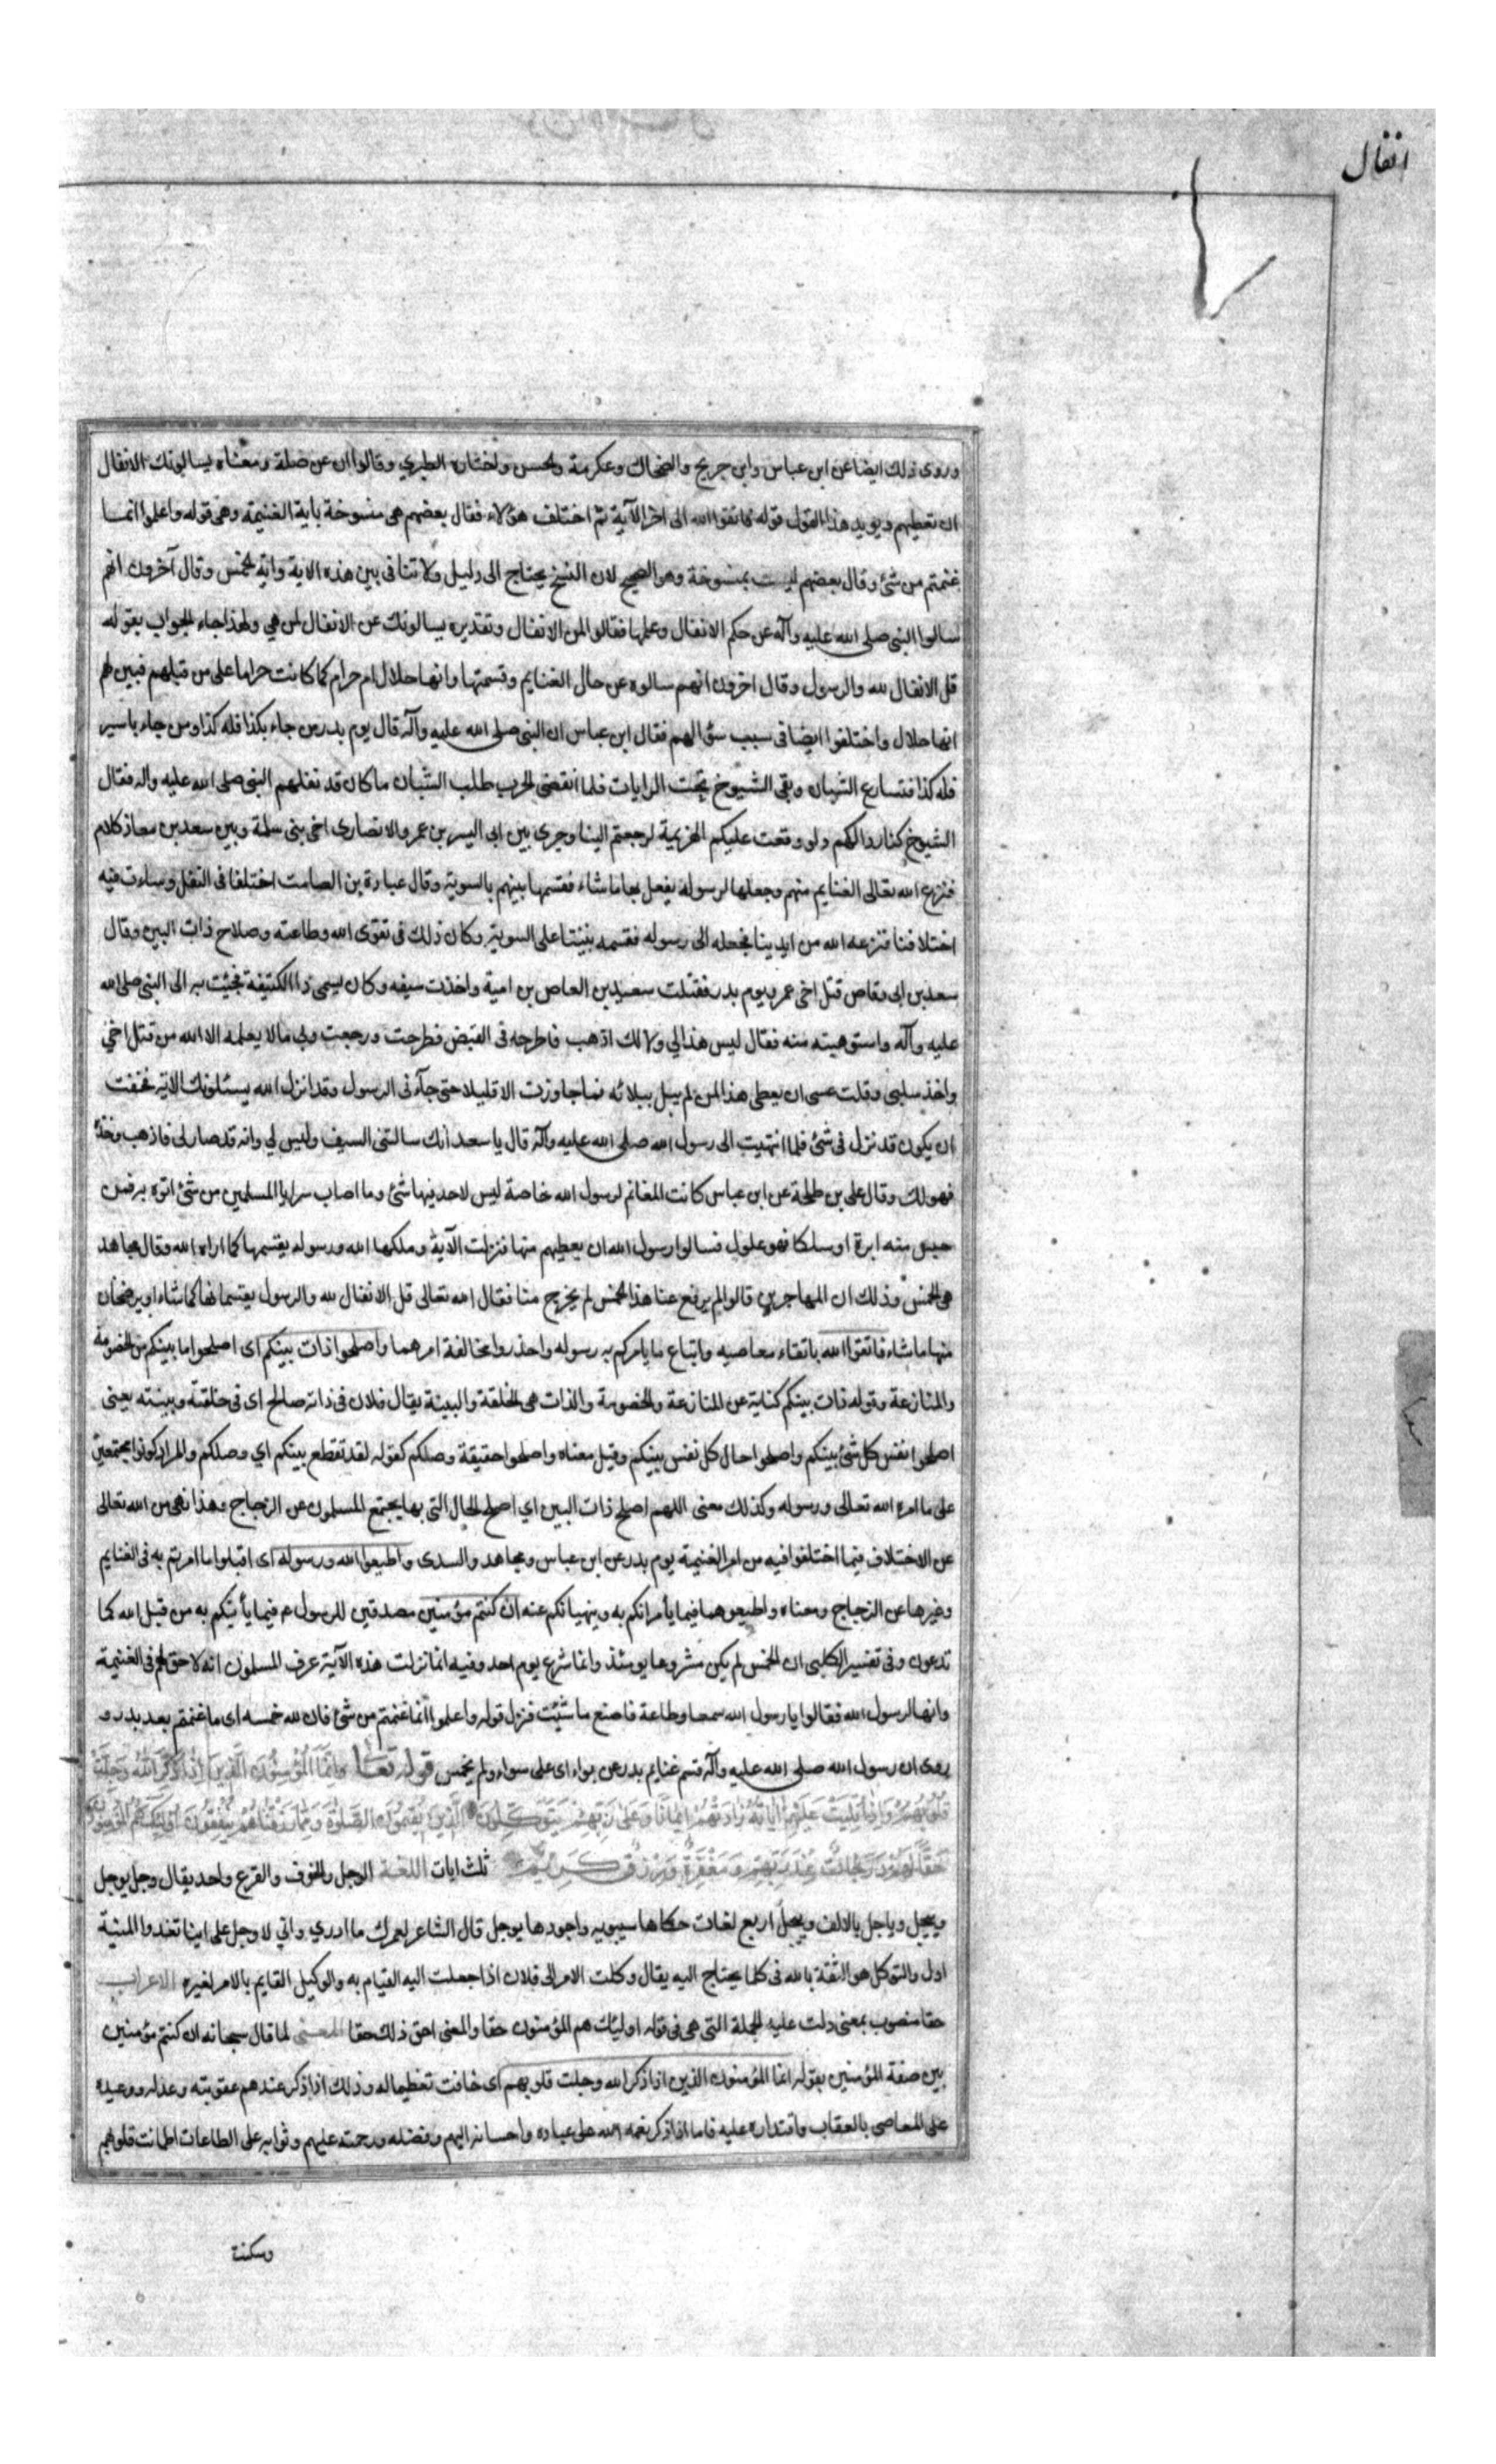 انفال
وروى ذلك ايضا عن ابن عباس وابن جريج والضحاك وعكرمة والحسن واختاره الطبري وقالوا ان عن صلة ومعناه يسالونك الانفال
ان تعطيهم ويويد هذا القول قوله فاتقوا الله الى اخر الآية ثم اختلف هؤلاء فقال بعضهم هى منسوخة باية الغنيمة وهى قوله واعلموا انما
غنمتم من شئ وقال بعضهم ليست بمنسوخة وهو الصحيح لان النسخ يحتاج الى دليل ولا تنافى بين هذه الاية واية الخمس وقال آخرون انهم
سالوا النبى صلى الله عليه وآله عن حكم الانفال وعملها فقالوا لمن الانفال وتقديره يسالونك عن الانفال لمن هي ولهذا جاء الجواب بقوله
قل الانفال لله والرسول وقال اخرون انهم سالوه عن حال الغنايم وقسمتها وانها حلال ام حرام كما كانت حراما على من قبلهم فبين لهم
انها حلال واختلفوا ايضا فى سبب سؤالهم فقال ابن عباس ان النبى صلى الله عليه وآله قال يوم بدر من جاء بكذا فله كذا ومن جاء باسير
فله كذا فتسارع الشبان وبقى الشيوخ تحت الرايات فلما انقضى الحرب طلب الشبان ما كان قد نفلهم النبى صلى الله عليه واله فقال
الشيوخ كنا ردا لكم ولو وقعت عليكم الهزيمة لرجعتم الينا وجرى بين ابى اليسر بن عمرو الانصارى اخى بنى سلمة وبين سعد بن معاذ كلام
فنزع الله تعالى الغنايم منهم وجعلها لرسوله يفعل بها ما شاء فقسمها بينهم بالسوية وقال عبادة بن الصامت اختلفنا فى النفل وساءت فيه
اخلاقنا فنزعه الله من ايدينا فجعله الى رسوله فقسمه بيننا على السوية وكان ذلك فى تقوى الله وطاعته وصلاح ذات البين وقال
سعد بن ابى وقاص قتل اخى عمير يوم بدر فقتلت سعيد بن العاص بن امية واخذت سيفه وكان يسمى ذا الكتيفة فجئت به الى النبى صلى الله
عليه وآله واستوهبته منه فقال ليس هذا لي ولا لك اذهب فاطرحه فى القبض فطرحت ورجعت وبى ما لا يعلمه الا الله من قتل اخي
واخذ سلبى وقلت عسى ان يعطى هذا لمن لم يبل ببلائه فما جاوزت الا قليلا حتى جآءنى الرسول وقد انزل الله يسئلونك الاية فخفت
ان يكون قد نزل فى شئ فلما انتهيت الى رسول الله صلى الله عليه وآله قال يا سعد انك سالتنى السيف وليس لي وانه قد صار لى فاذهب وخذه
فهو لك وقال على بن طلحة عن ابن عباس كانت المغانم لرسول الله خاصة ليس لاحد فيها شئ وما اصاب سرايا المسلمين من شئ اتوه به فمن
حبس منه ابرة او سلكا فهو غلول فسالوا رسول الله ان يعطيهم منها فنزلت الآية وملكها الله ورسوله يقسمها كما اراه الله وقال مجاهد
هى الخمس وذلك ان المهاجرين قالوا لم يرفع عنا هذا الخمس لم يخرج منا فقال الله تعالى قل الانفال لله والرسول يقسمانها كما شاء او يرضخان
منها ما شاء فاتقوا الله باتقاء معاصيه واتباع ما يامركم به رسوله واحذروا مخالفة امرهما واصلحوا ذات بينكم اى اصلحوا ما بينكم من الخصومة
والمنازعة وقوله ذات بينكم كناية عن المنازعة والخصومة والذات هى الخلقة والبينة يقال فلان فى ذاته صالح اى فى خلقته وبينته يعنى
اصلحوا نفس كل شئ بينكم واصلحوا حال كل نفس بينكم وقيل معناه واصلحوا حقيقة وصلكم كقوله لقد تقطع بينكم اي وصلكم والمراد كونوا مجتمعين
على ما امره الله تعالى ورسوله وكذلك معنى اللهم اصلح ذات البين اي اصلح الحال التى بها يجتمع المسلمون عن الزجاج وهذا نهى من الله تعالى
عن الاختلاف فيما اختلفوا فيه من امر الغنيمة يوم بدر عن ابن عباس ومجاهد والسدى واطيعوا الله ورسوله اى اقبلوا ما امرتم به فى الغنايم
وغيرها عن الزجاج ومعناه واطيعوهما فيما يأمرانكم به وينهيانكم عنه ان كنتم مؤمنين مصدقين للرسول ع فيما يأتيكم به من قبل الله كما
تدعون وفى تفسير الكلبى ان الخمس لم يكن مشروعا يومئذ وانما شرع يوم احد وفيه انما نزلت هذه الآية عرف المسلمون انه لا حق لهم فى الغنيمة
وانها لرسول الله فقالوا يا رسول الله سمعا وطاعة فاصنع ما شئت فنزل قوله واعلموا انما غنمتم من شئ فان لله خمسه اى ما غنمتم بعد بدر و
روى ان رسول الله صلى الله عليه وآله قسم غنايم بدر عن بواء اى على سواء ولم يخمس قوله تعالى اِنَّمَا الْمُؤْمِنُونَ الَّذِينَ اِذَا ذُكِرَ اللهُ وَجِلَتْ
قُلُوبُهُمْ وَاِذَا تُلِيَتْ عَلَيْهِمْ ايَاتُهُ زَادَتْهُمْ اِيمَانًا وَعَلَى رَبِّهِمْ يَتَوَكَّلُونَ الَّذِينَ يُقِيمُونَ الصَّلٰوةَ وَمِمَّا رَزَقْنَاهُمْ يُنْفِقُونَ اُولٰئِكَ هُمُ الْمُؤْمِنُونَ
حَقًّا لَهُمْ دَرَجَاتٌ عِنْدَ رَبِّهِمْ وَمَغْفِرَةٌ وَرِزْقٌ كَرِيمٌ ثلث ايات اللغة الوجل والخوف والفزع واحد يقال وجل يوجل
وييجل وياجل بالالف وييجل اربع لغات حكاها سيبويه واجودها يوجل قال الشاعر لعمرك ما ادري واني لاوجل على اينا تغدوا المنية
اول والتوكل هو الثقة بالله فى كلما يحتاج اليه يقال وكلت الامر الى فلان اذا جعلت اليه القيام به والوكيل القايم بالامر لغيره الاعراب
حقا منصوب بمعنى دلت عليه الجملة التى هى فى قوله اولئك هم المؤمنون حقا والمعنى احق ذلك حقا المعنى لما قال سبحانه ان كنتم مؤمنين
بين صفة المؤمنين بقوله انما المؤمنون الذين اذا ذكر الله وجلت قلوبهم اى خافت تعظيما له وذلك اذا ذكر عندهم عقوبته وعدله ووعيده
على المعاصى بالعقاب واقتداره عليه فاما اذا ذكر نعمه الله على عباده واحسانه اليهم وفضله ورحمته عليهم وثوابه على الطاعات اطمانت قلوبهم
وسكنت